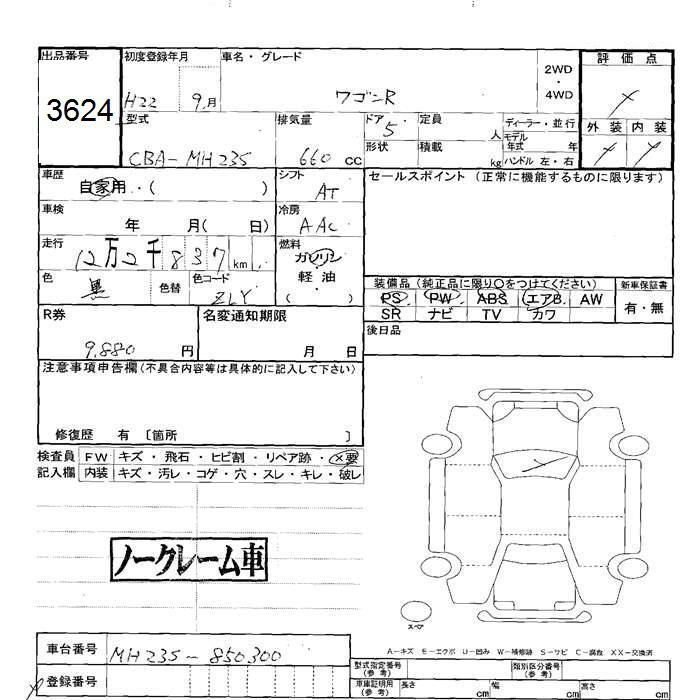 出品番号 初度登録年月 車名・グレード 2WD ・ 4WD 評価点
3624 H22 9月 ワゴンR
型式 排気量 ドア 定員 ディーラー・並行 外装 内装
CBA-MH23S 660 cc 5 人 モデル年式 年
形状 積載 kg ハンドル 左・右
車歴 シフト セールスポイント (正常に機能するものに限ります)
自家用・( ) AT
車検 冷房
年 月( 日) AAC
走行 燃料
12万2千837km ガソリン
色 色替 色コード 軽油 装備品(純正品に限り○をつけてください) 新車保証書
黒 ZLY ( ) PS PW ABS エアB. AW 有・無
SR ナビ TV カワ
R券 名変通知期限 後日品
9,880円 月 日
注意事項申告欄(不具合内容等は具体的に記入して下さい)
修復歴 有 〔箇所 〕
検査員 FW キズ・飛石・ヒビ割・リペア跡・×要
記入欄 内装 キズ・汚レ・コゲ・穴・スレ・キレ・破レ
ノークレーム車
スペア
A-キズ E-エクボ U-凹み W-補修跡 S-サビ C-腐食 XX-交換済
車台番号 MH23S-850300 型式指定番号(参考) 類別区分番号(参考)
登録番号 車庫証明用(参考) 長さ cm 幅 cm 高さ cm